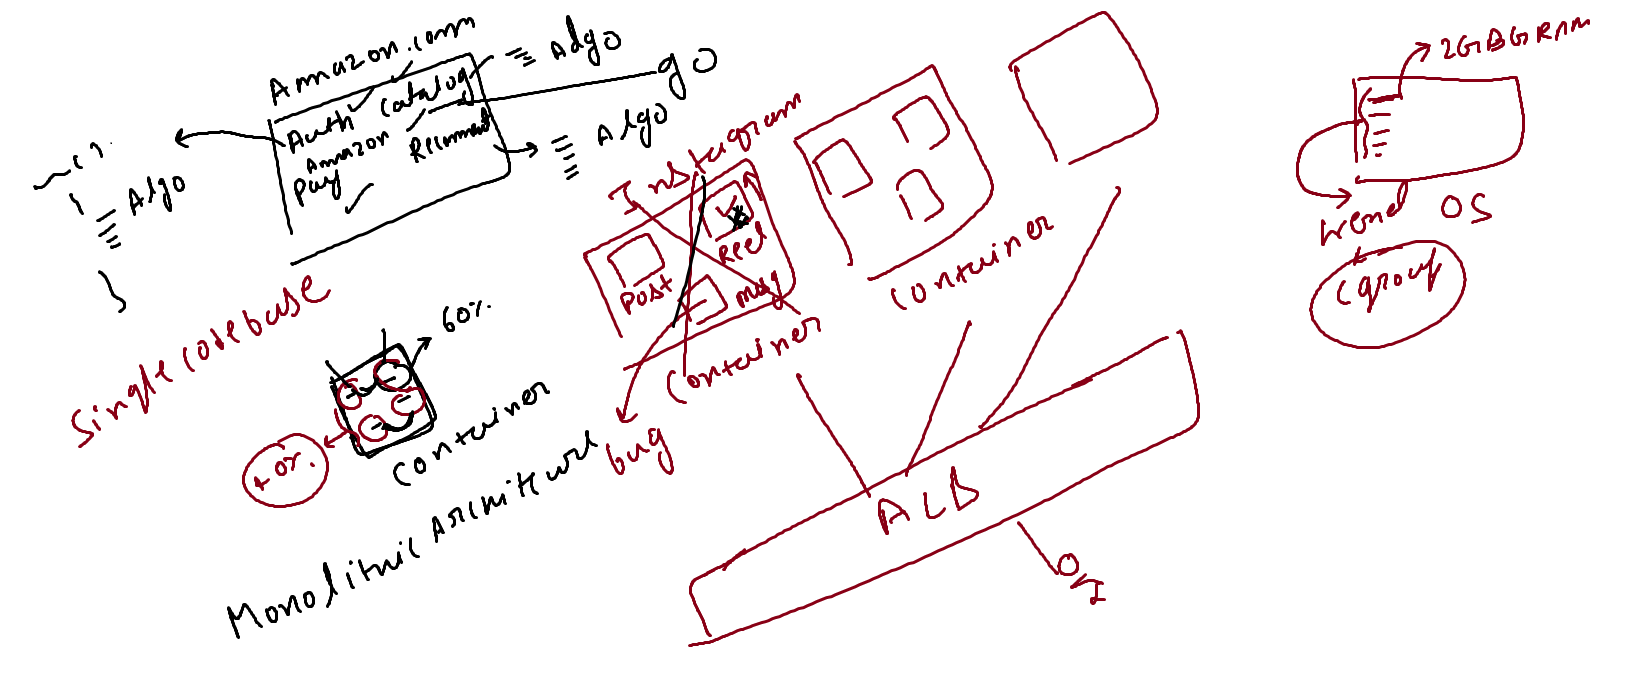 Amazon.com
Auth
Catalog
Amazon
Pay
Algo
go
Algo
Algo
Single codebase
60%.
Container
Monolithic
Instagram
Post
Reel
msg
Container
bug
Container
ALB
2GB GRAM
OS
cgroup